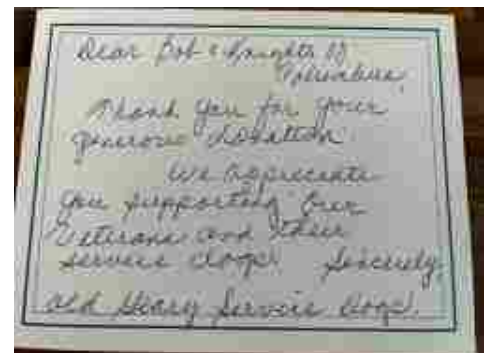 Dear Bob & Knights of
Columbus,
Thank you for your
generous donation.
We appreciate
you supporting our
Veterans and their
service dogs! Sincerely,
Service Dogs.